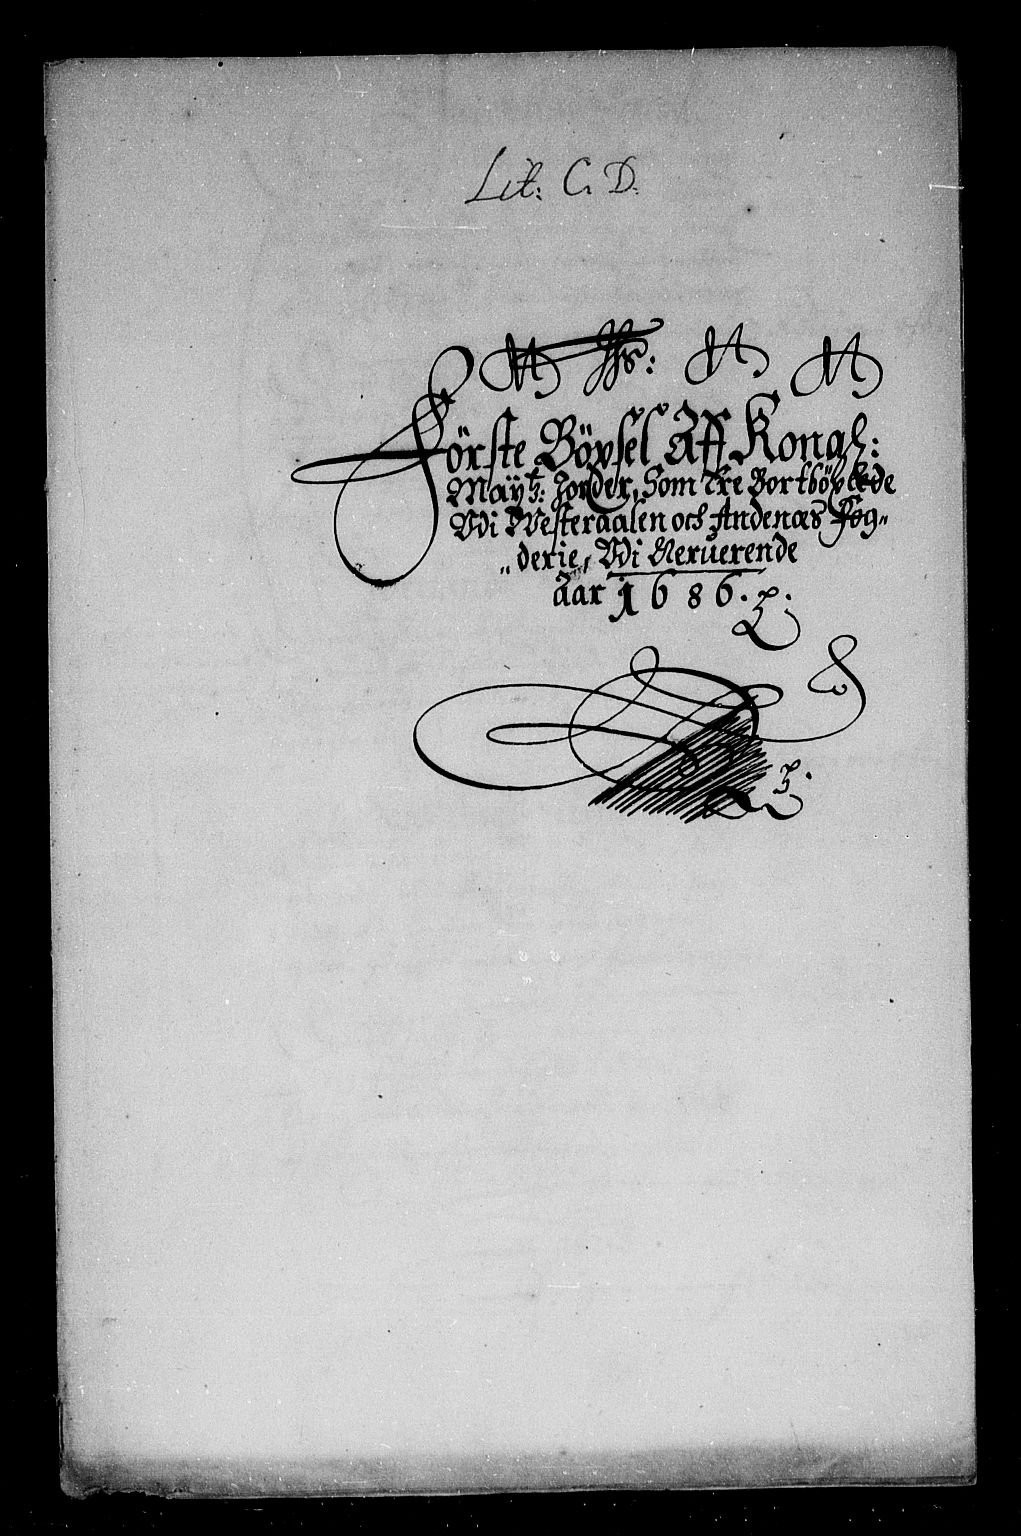 Lit: C. D.
Förste Böysel Aff Kongl:
Mayts: Jorder, Som Ere Bortböxlede
Vdi Westeraalen och Andenæs Fog„
„derie, Vdi Neruerende
Aar 1686.